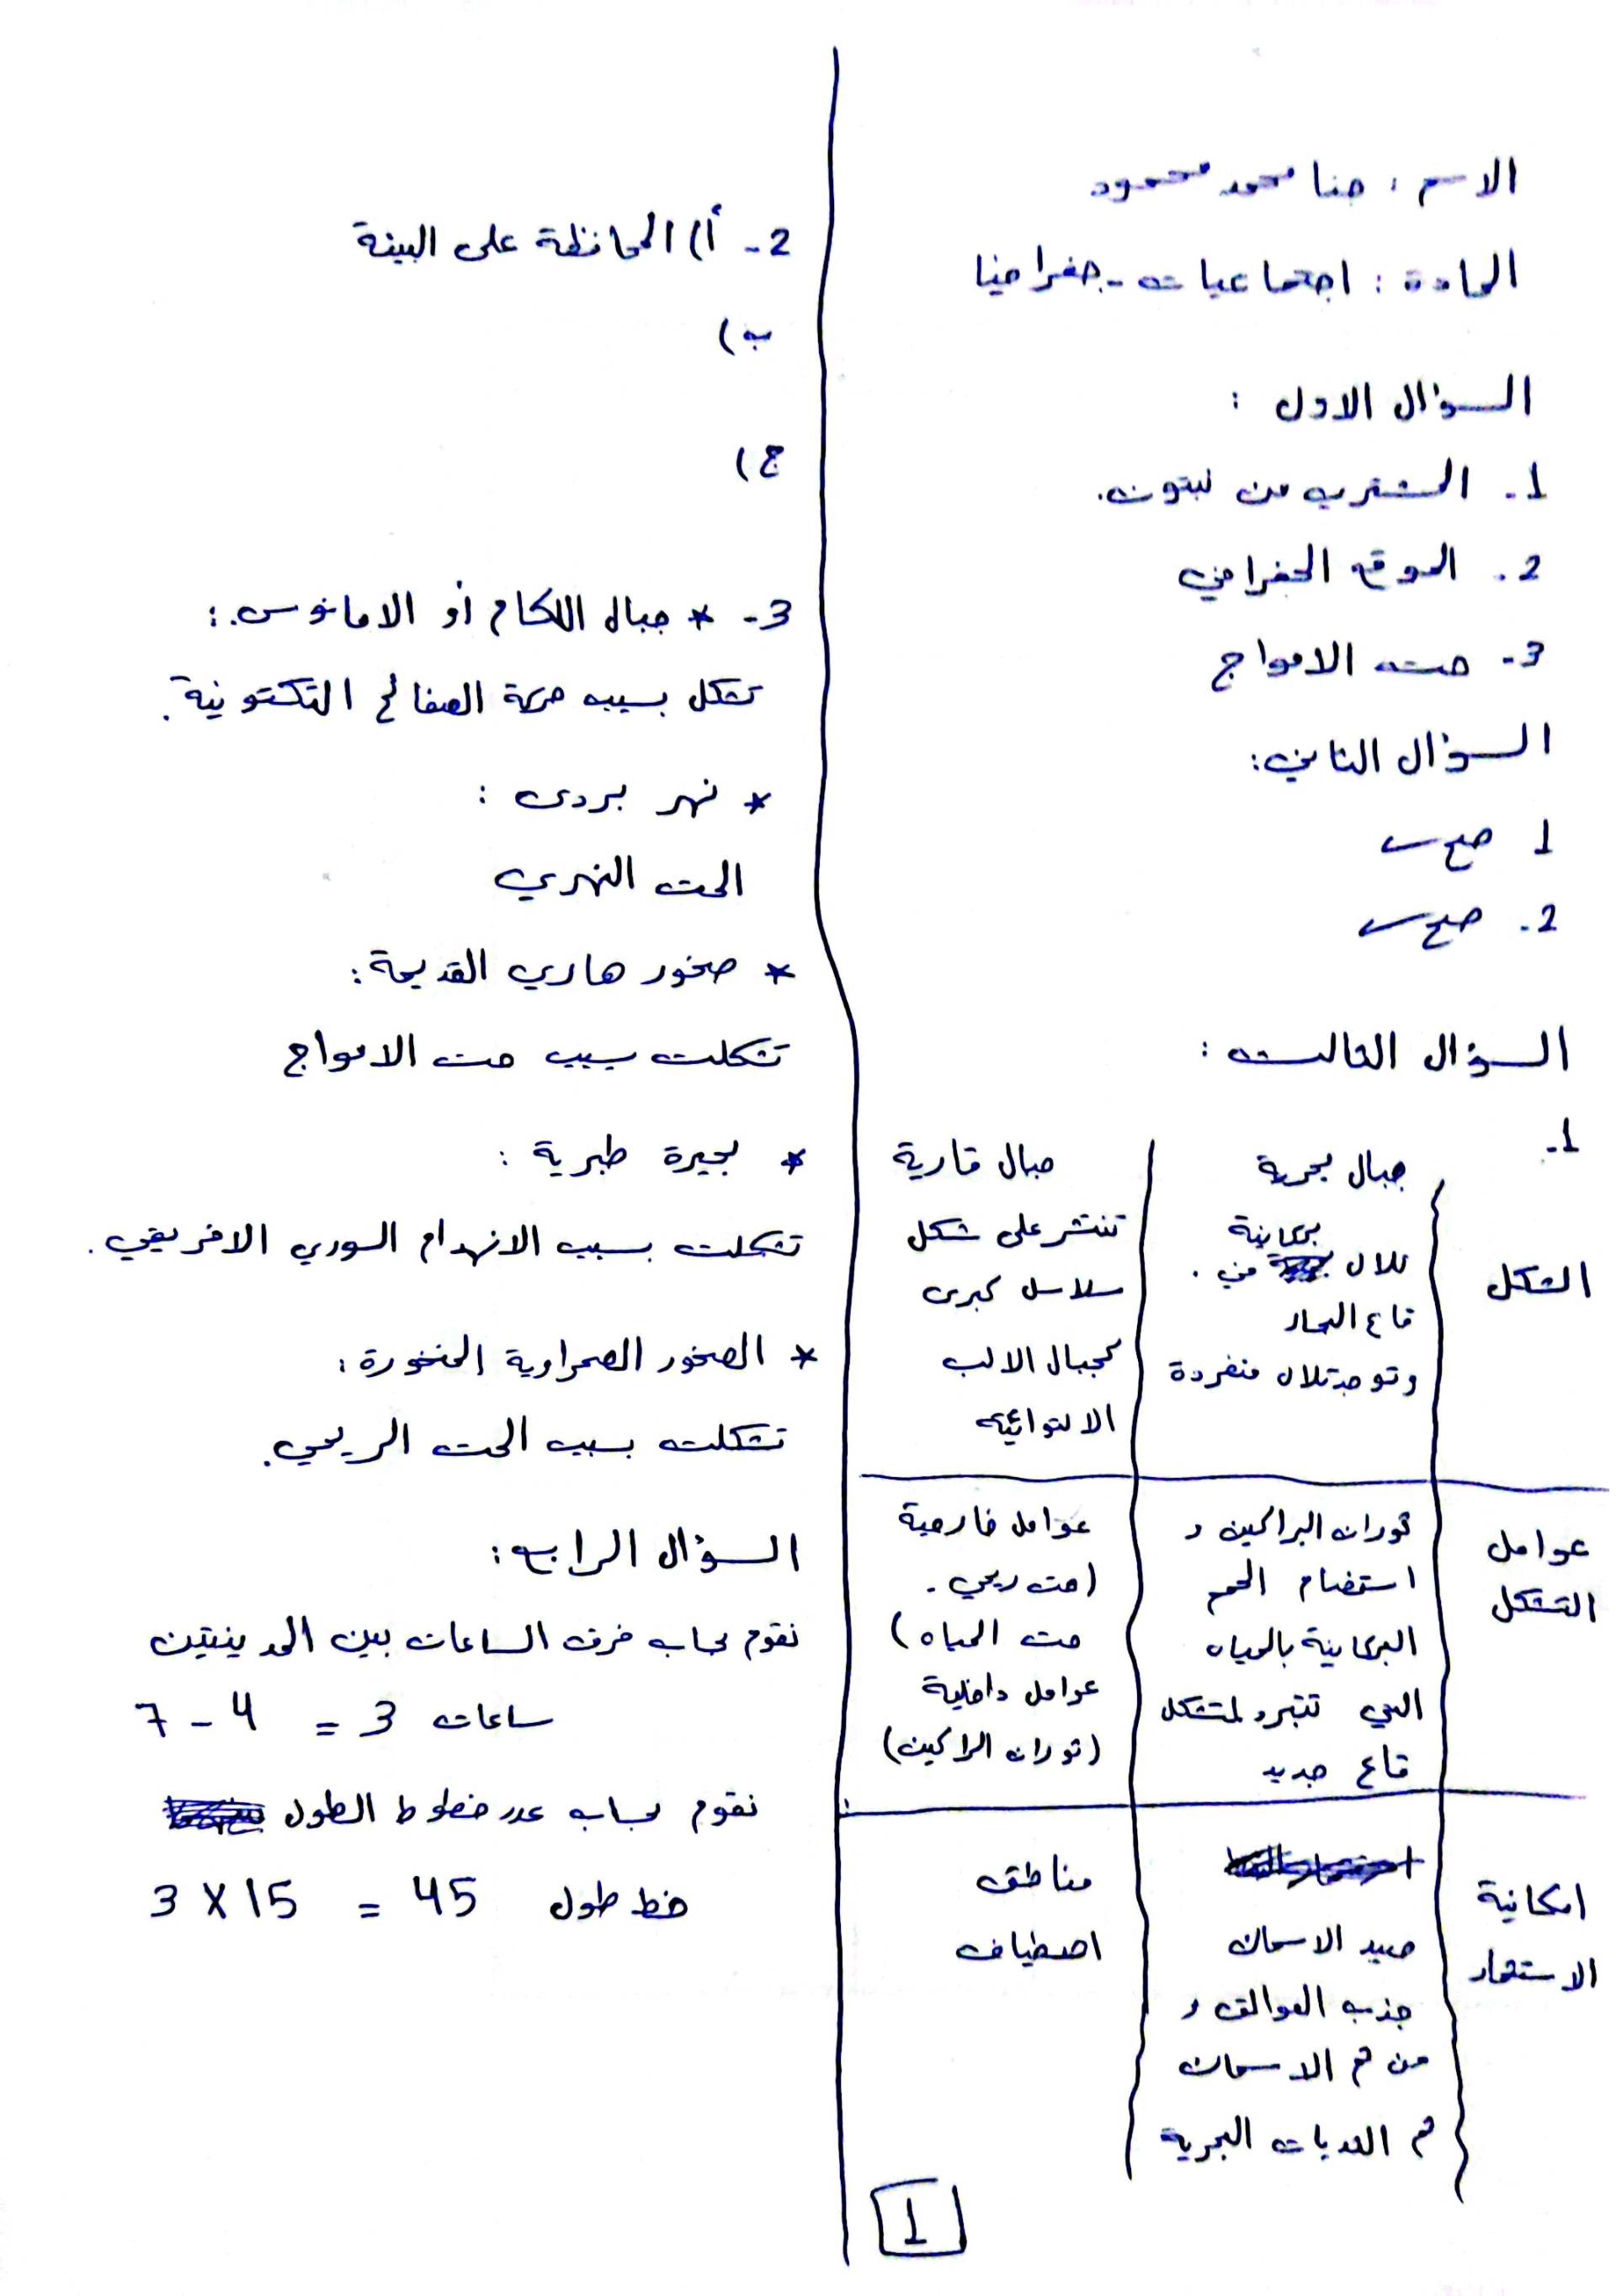 الاسم : حنا محمد محمود
المادة : اجتماعيات - جغرافيا
السؤال الاول :
1- المشتري من نبتون.
2. الموقع الجغرافي
3- حت الامواج
السؤال الثاني:
1 صح
2. صح
السؤال الثالث :
1-
جبال بحرية
جبال قارية
الشكل
بركانية
تلال في .
قاع البحار
وتوجد تلال منفردة
تنتشر على شكل
سلاسل كبرى
كجبال الالب
الالتوائية
عوامل
التشكل
ثوران البراكين و
استضام الحمم
البركانية بالمياه
التي تتبرد لتشكل
قاع جديد
عوامل خارجية
(حت ريحي .
حت المياه)
عوامل داخلية
(ثوران الراكين)
امكانية
الاستثمار
صيد الاسماك
جذب العوالق و
من ثم الاسماك
ثم الثديات البحرية
مناطق
اصطياف
1
2- أ) المحافظة على البيئة
ب)
ج)
3- * جبال اللكام أو الامانوس :
تشكل بسبب حركة الصفائح التكتونية.
* نهر بردى :
الحت النهري
* صخور هاري القديمة :
تشكلت بسبب حت الامواج
* بحيرة طبرية :
تشكلت بسبب الانهدام السوري الافريقي .
* الصخور الصحراوية المنخورة :
تشكلت بسبب الحت الريحي.
السؤال الرابع :
نقوم بحساب فرق الساعات بين المدينتين
7 - 4 = 3 ساعات
نقوم بحساب عدد خطوط الطول
3 X 15 = 45 خط طول